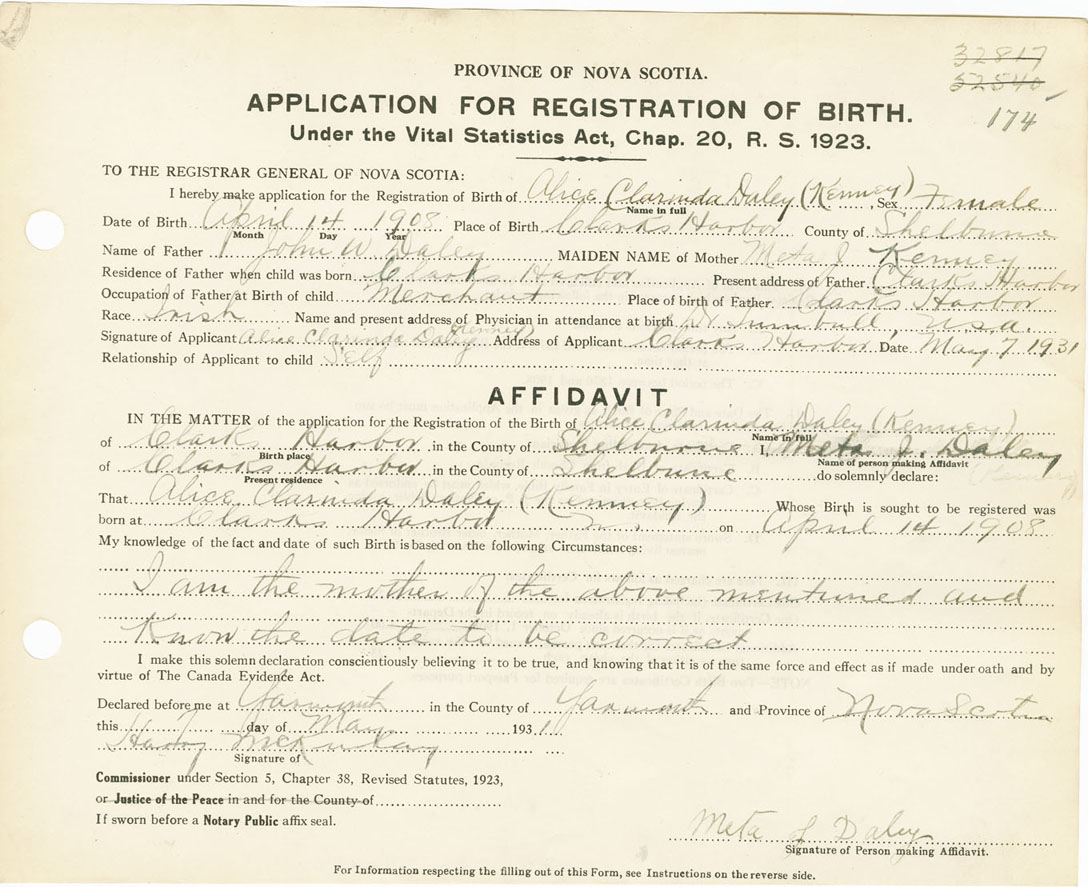 32817
52540
174
PROVINCE OF NOVA SCOTIA.
APPLICATION FOR REGISTRATION OF BIRTH.
Under the Vital Statistics Act, Chap. 20, R. S. 1923.
TO THE REGISTRAR GENERAL OF NOVA SCOTIA:
I hereby make application for the Registration of Birth of Alice Clarinda Daley (Kenney) Sex Female
Name in full
Date of Birth April 14 1908 Place of Birth Clarks Harbor County of Shelburne
Month Day Year
Name of Father John W Daley MAIDEN NAME of Mother Meta J Kenney
Residence of Father when child was born Clarks Harbor Present address of Father Clarks Harbor
Occupation of Father at Birth of child Merchant Place of birth of Father Clarks Harbor
Race Irish Name and present address of Physician in attendance at birth Dr Turnbull, U.S.A.
Signature of Applicant Alice Clarinda Daley (Kenney) Address of Applicant Clarks Harbor Date May 7 1931
Relationship of Applicant to child Self
AFFIDAVIT
IN THE MATTER of the application for the Registration of the Birth of Alice Clarinda Daley (Kenney)
Name in full
of Clarks Harbor in the County of Shelbourne I, Meta J. Daley
Birth place Name of person making Affidavit
of Clarks Harbor in the County of Shelburne do solemnly declare: (Kenney)
Present residence
That Alice Clarinda Daley (Kenney) Whose Birth is sought to be registered was
born at Clarks Harbor on April 14 1908
My knowledge of the fact and date of such Birth is based on the following Circumstances:
I am the mother of the above mentuned and
Know the date to be correct
I make this solemn declaration conscientiously believing it to be true, and knowing that it is of the same force and effect as if made under oath and by
virtue of The Canada Evidence Act.
Declared before me at Yarmouth in the County of Yarmouth and Province of Nova Scotia
this 7 day of May 1931
Harry McKinlay
Signature of
Commissioner under Section 5, Chapter 38, Revised Statutes, 1923,
or Justice of the Peace in and for the County of
If sworn before a Notary Public affix seal.
Meta J Daley
Signature of Person making Affidavit.
For Information respecting the filling out of this Form, see Instructions on the reverse side.